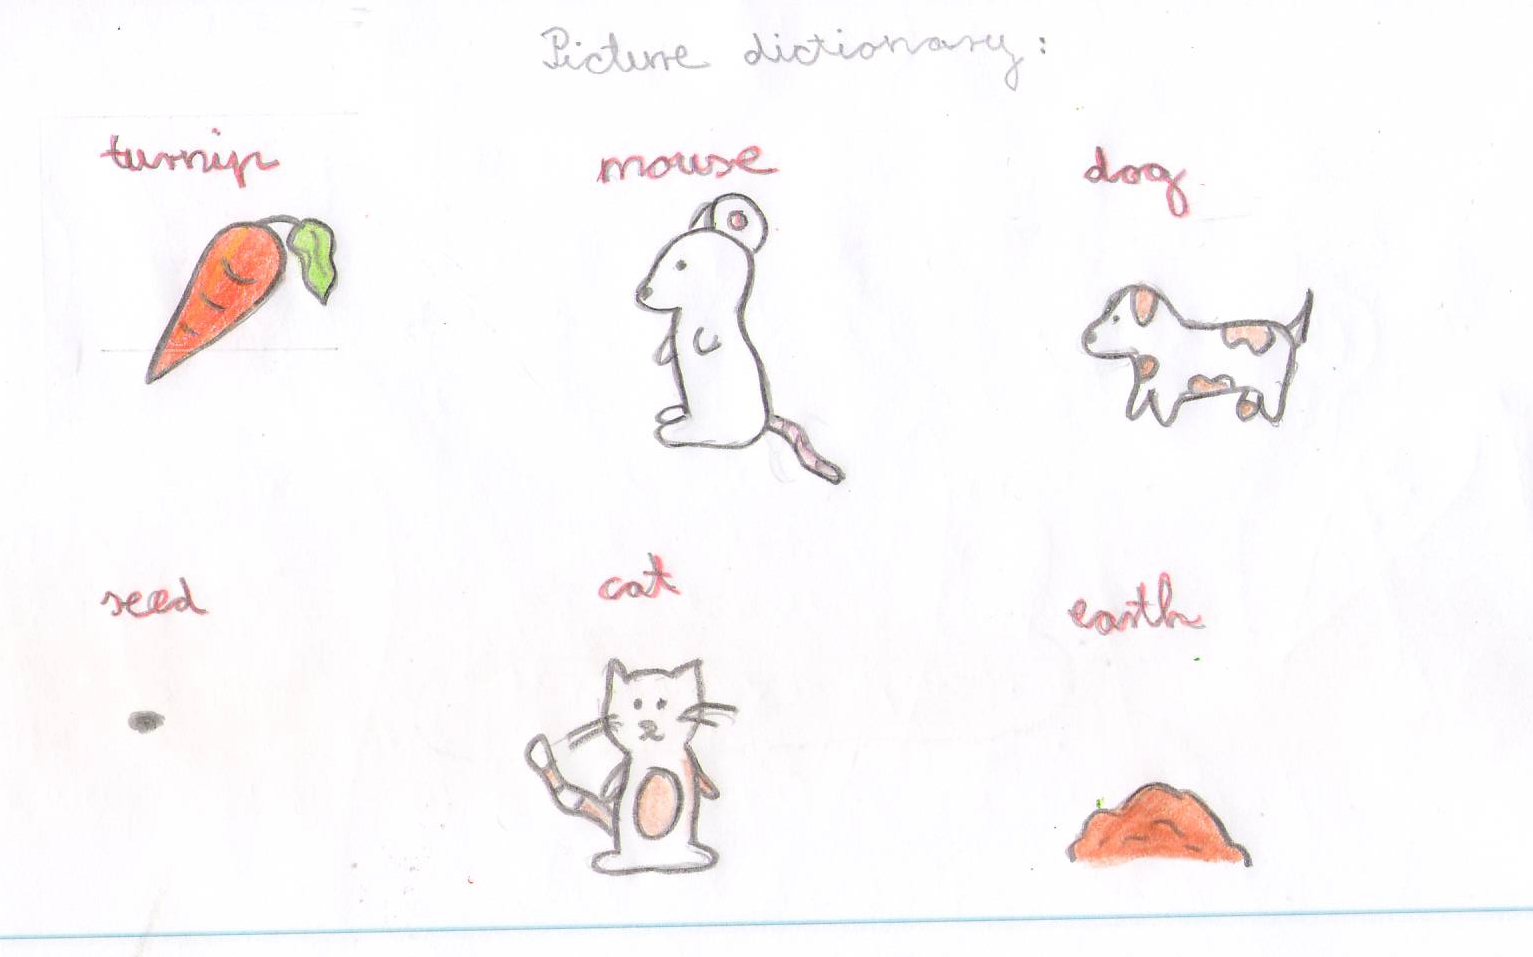 Picture dictionary:
turnip
mouse
dog
seed
cat
earth